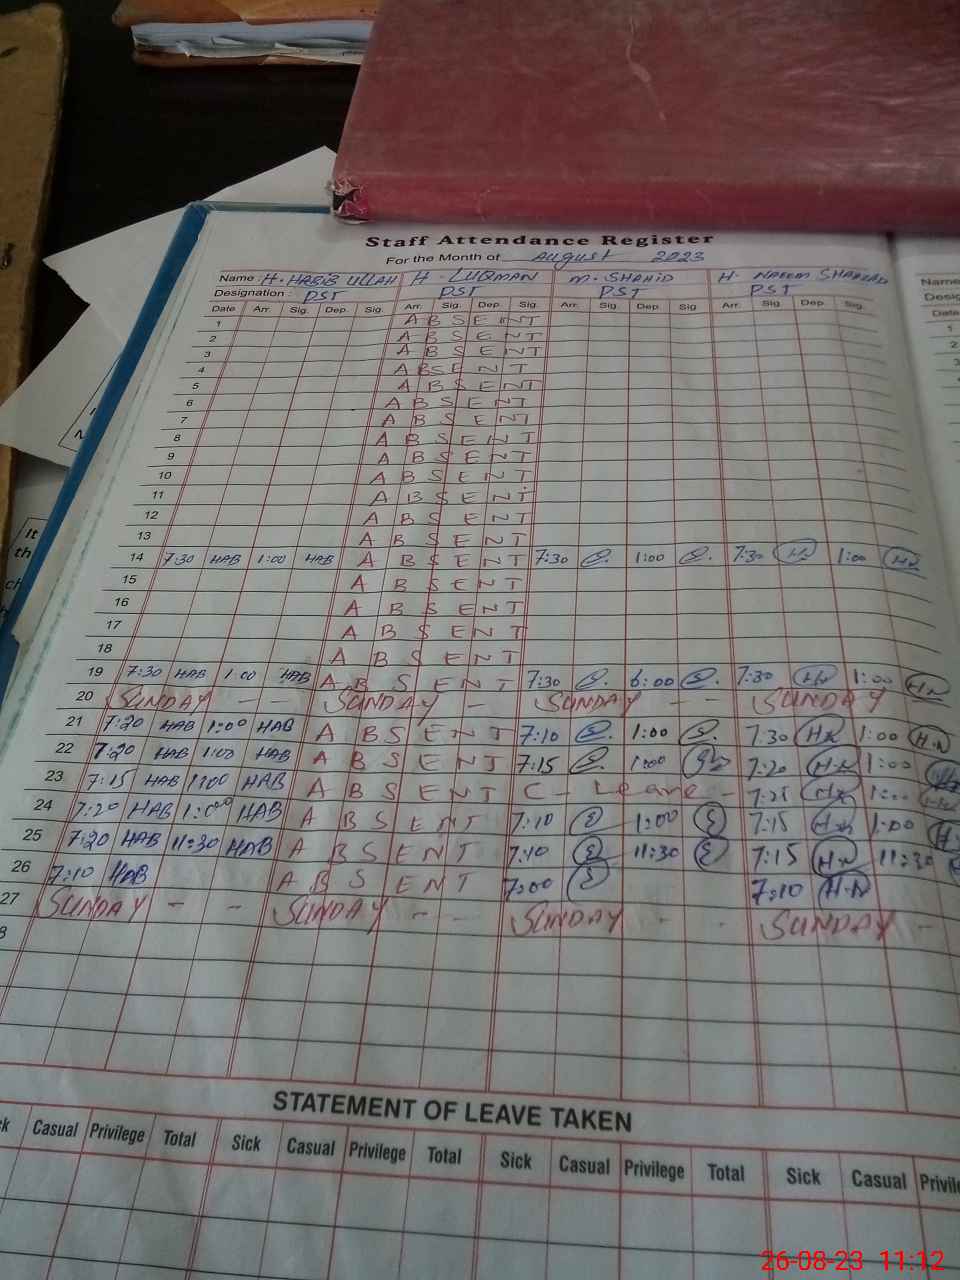 Staff Attendance Register
For the Month of August 2023
Name H. HABIB ULLAH H. LUQMAN M. SHAHID H. NAEEM SHAHZAD Name
Designation : PST PST PST PST
Date Arr. Sig. Dep. Sig. Arr. Sig. Dep. Sig. Arr. Sig. Dep. Sig. Arr. Sig. Dep. Sig. Date
1 ABSENT 1
2 ABSENT 2
3 ABSENT
4 ABSENT
5 ABSENT
6 ABSENT
7 ABSENT
8 ABSENT
9 ABSENT
10 ABSENT
11 ABSENT
12 ABSENT
13 ABSENT
14 7:30 HAB 1:00 HAB ABSENT 7:30 S. 1:00 S. 7:30 H.N 1:00 H.N
15 ABSENT
16 ABSENT
17 ABSENT
18 ABSENT
19 7:30 HAB 1:00 HAB ABSENT 7:30 S. 6:00 S. 7:30 H.N 1:00 H.N
20 SUNDAY - - SUNDAY - SUNDAY - - SUNDAY
21 7:20 HAB 1:00 HAB ABSENT 7:10 S. 1:00 S. 7:30 H.N 1:00 H.N
22 7:20 HAB 1:00 HAB ABSENT 7:15 S. 1:00 7:20 H.N 1:00
23 7:15 HAB 1:00 HAB ABSENT C - Leave - 7:25 H.N
24 7:20 HAB 1:00 HAB ABSENT 7:10 S 1:00 S 7:15 H.N 1:00
25 7:20 HAB 11:30 HAB ABSENT 7:10 S 11:30 S 7:15 H.N 11:30
26 7:10 HAB ABSENT 7:00 S 7:10 H.N
27 SUNDAY - - SUNDAY - - SUNDAY - - SUNDAY -
STATEMENT OF LEAVE TAKEN
Casual Privilege Total Sick Casual Privilege Total Sick Casual Privilege Total Sick Casual
26-08-23 11:12